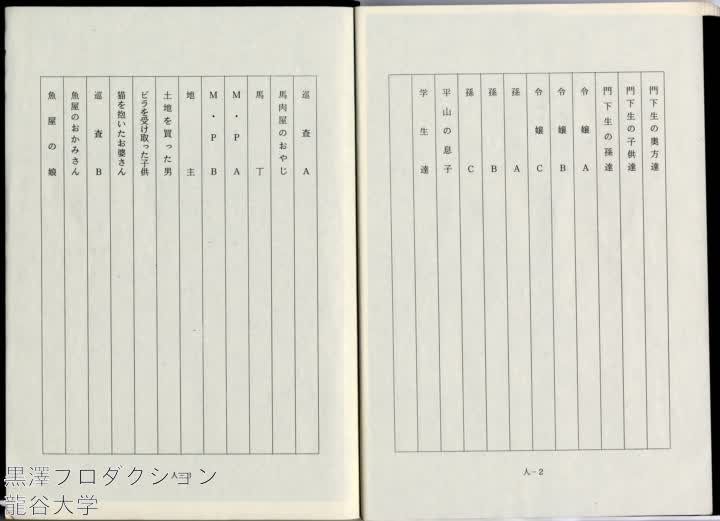 門下生の奥方達
門下生の子供達
門下生の孫達
令嬢A
令嬢B
令嬢C
孫A
孫B
孫C
平山の息子
学生達
人-2
巡査A
馬肉屋のおやじ
馬丁
M・PA
M・PB
地主
土地を買った男
ビラを受け取った子供
猫を抱いたお婆さん
巡査B
魚屋のおかみさん
魚屋の娘
人-3
黒澤プロダクション
龍谷大学